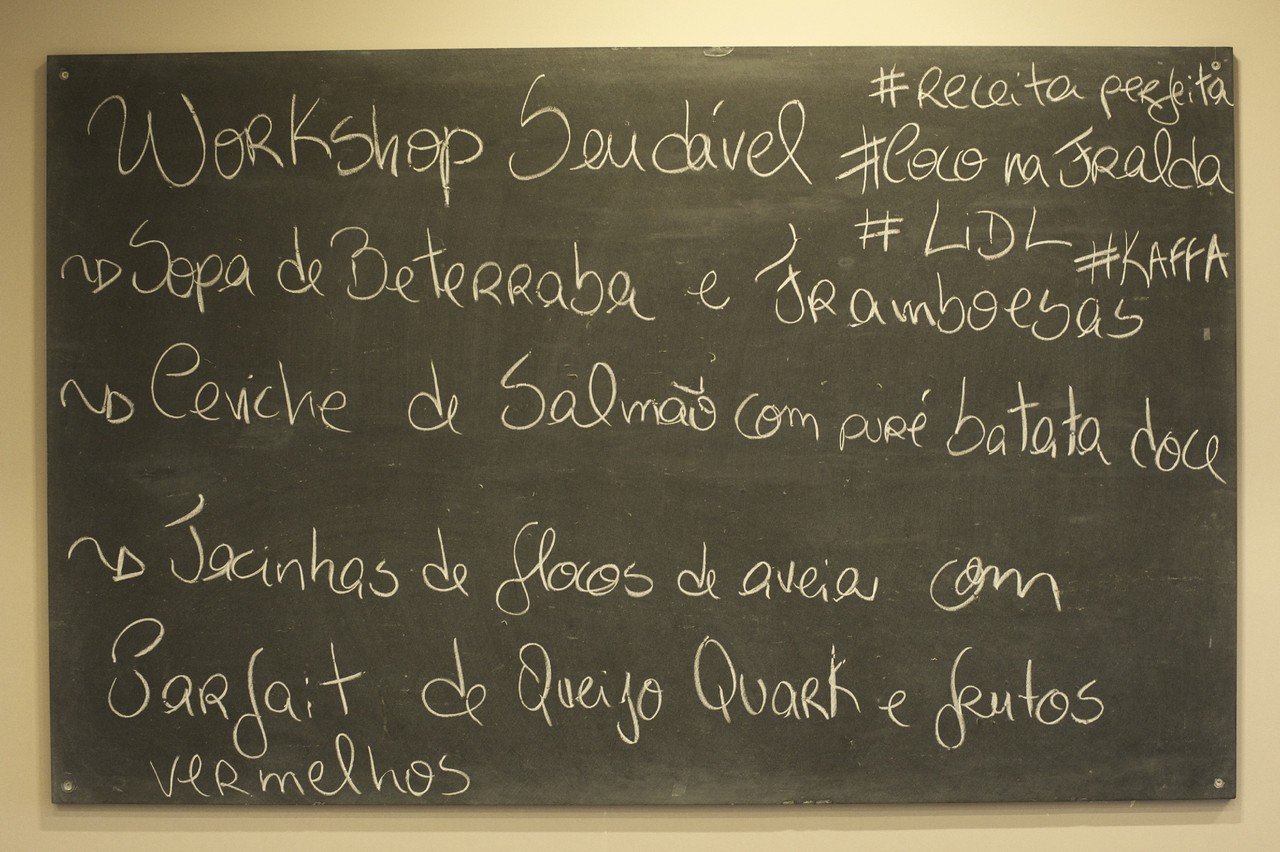 Workshop Saudável
#Receita perfeita
#Coco na Fralda
# LiDL #KAFFA
Sopa de Beterraba e Framboesas
Ceviche de Salmão com puré batata doce
Tacinhas de flocos de aveia com
Parfait de Queijo Quark e frutos
vermelhos